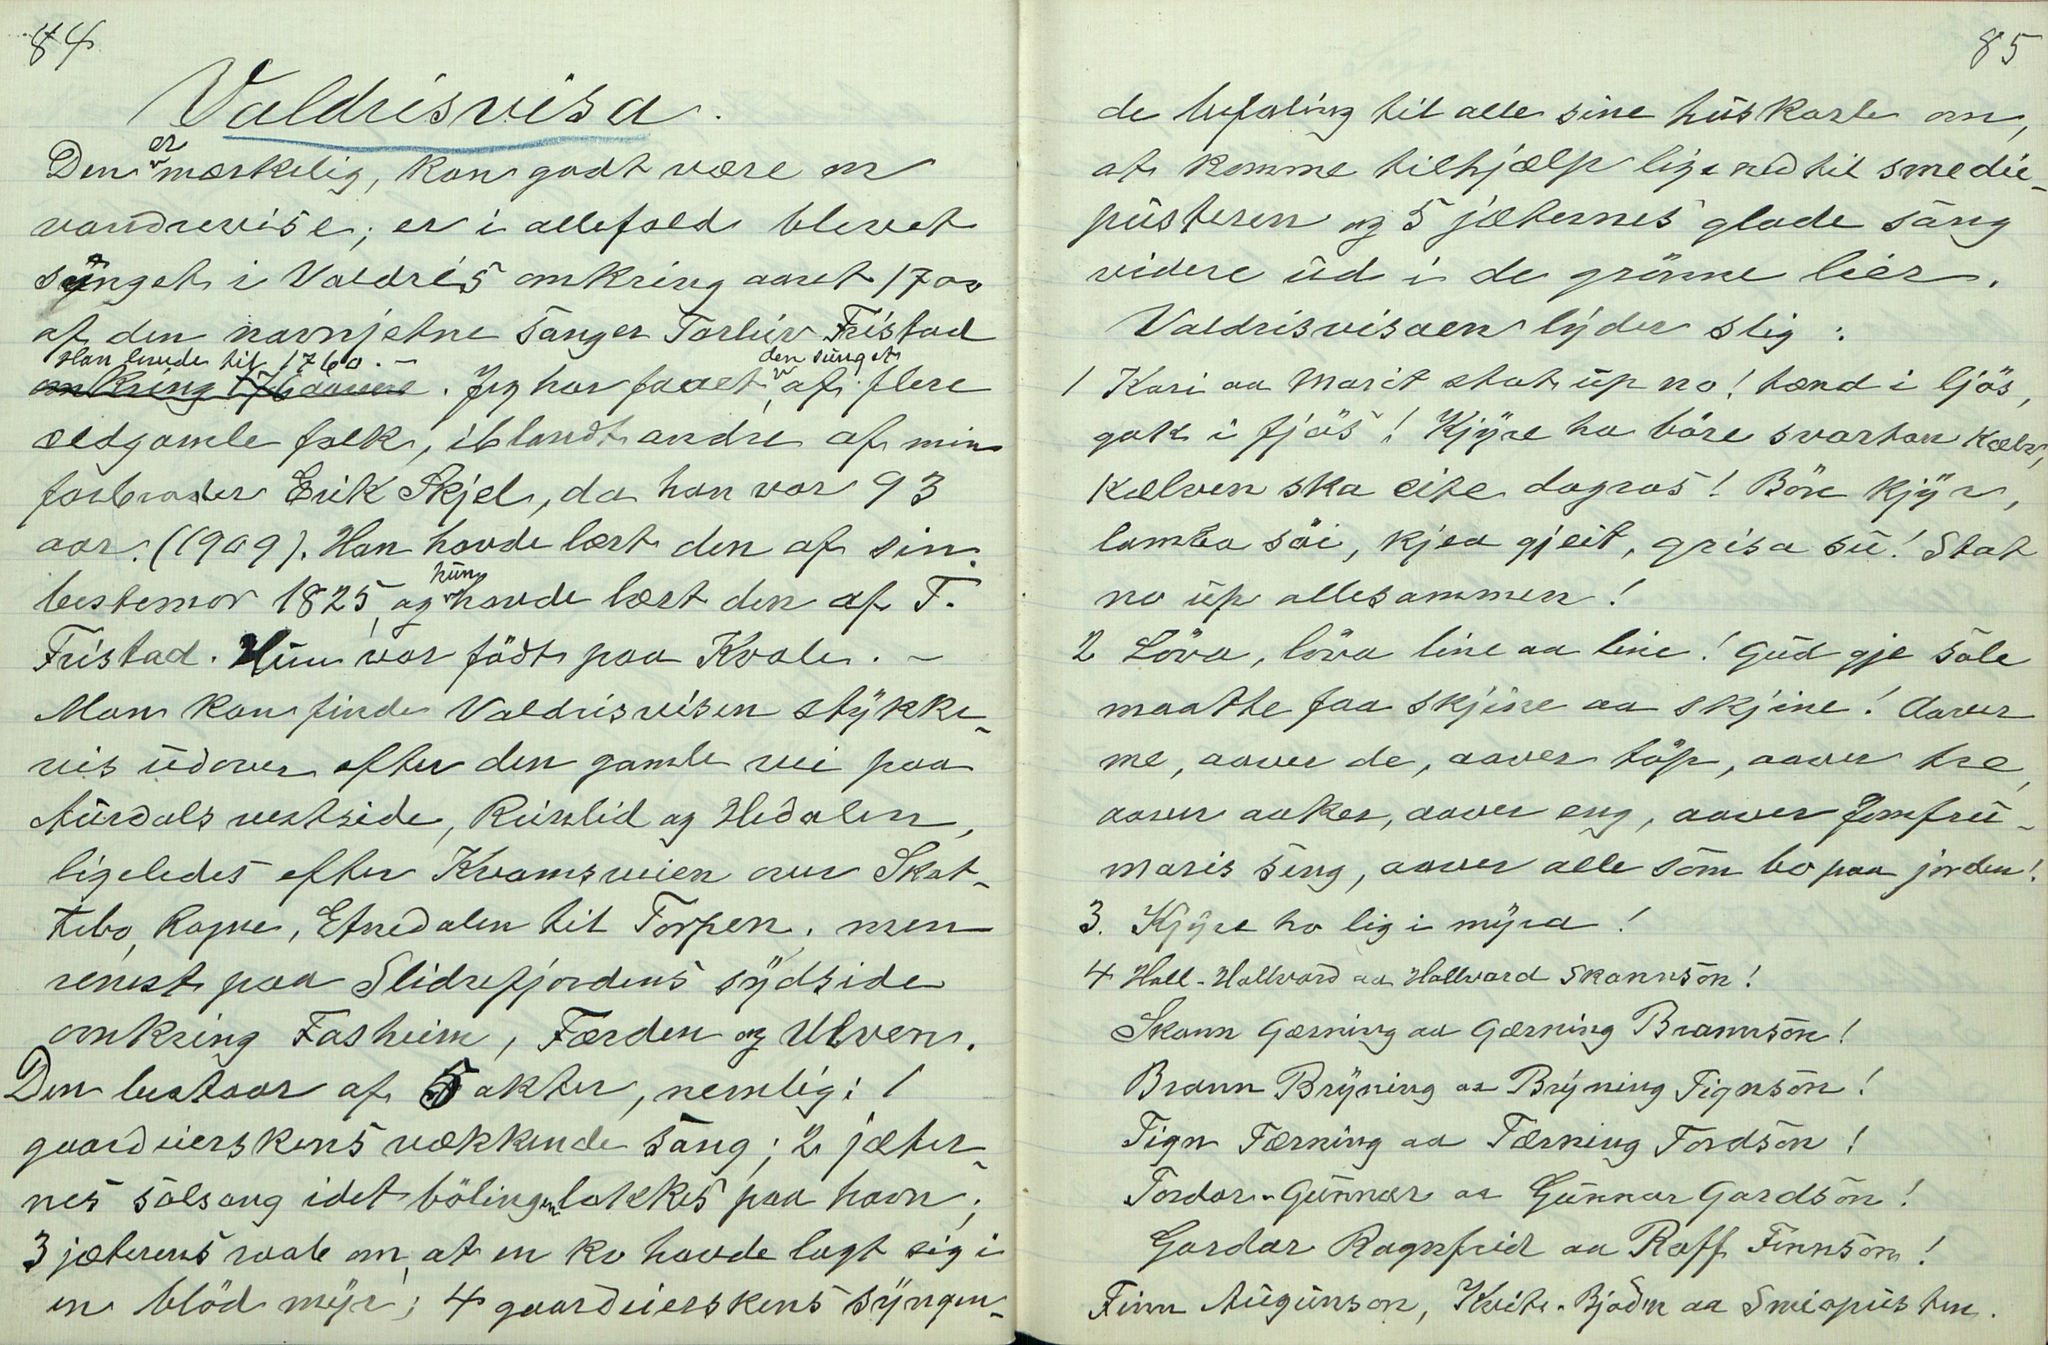 84
Valdrisvisa.
Den er mærkelig, kan godt være en
vandrevise; er i allefald blevet
sunget i Valdris omkring aaret 1700
af den navnjetne sanger Torleiv Fristad
Han levde til 1760. –
omkring 1760 aarene. Jeg har faaet den sunget af flere
ældgamle folk, iblandt andre af min
farbroder Erik Skjel, da han var 93
aar. (1909). Han havde lært den af sin
bestemor 1825, og hun havde lært den af T.
Fristad. Hun var födt paa Kvale. –
Man kan finde Valdrisvisen stykke-
vis udover efter den gamle vei paa
Aurdals vestside, Reinlid og Hedalen,
ligeledes efter Kvamsveien over Skut-
tebo, Rogne, Etnedalen til Torpen, men
renest paa Slidrefjordens sydside
omkring Fasheim, Færden og Ulven.
Den bestaar af 5 akter, nemlig: 1
gaardeierskens vækkende sang; 2 jæter-
nes solsang idet bölingen lokkes paa havn;
3 jæterens raab om, at en ko havde lagt sig i
en blöd myr; 4 gaardeierskens syngen-
85
de befaling til alle sine huskarle om,
at komme tilhjælp lige ned til smedie-
pusteren og 5 jæternes glade sang
videre ud i de grönne lier.
Valdrisvisaen lyder slig:
1 Kari aa Marit statt up no! tænd i ljös,
gakk i fjös! Kjyre ha böre svartan kælv,
kælven ska eite dagros! Böre kjyr,
lamba söi, kjea gjeit, grisa su! Statt
no up allesammen!
2 Löva, löva line aa line! Gud gje sole
maatte faa skjine aa skjine! Aaver
me, aaver de, aaver töp, aaver tre,
aaver aaker, aaver eng, aaver Jomfru-
maris seng, aaver alle som bo paa jorden!
3. Kjyre ho lig i myra!
4 Hall-Hallvard aa Hallvard Skannson!
Skann Gærning aa Gærning Brannson!
Brann Bryning aa Bryning Tignson!
Tign Tærning aa Tærning Tordson!
Tordar-Gunnar aa Gunnar Gardson!
Gardar Ragnfrid aa Raff Finnson!
Finn Augunson, Kvite-Bjödn aa Smiapusten.